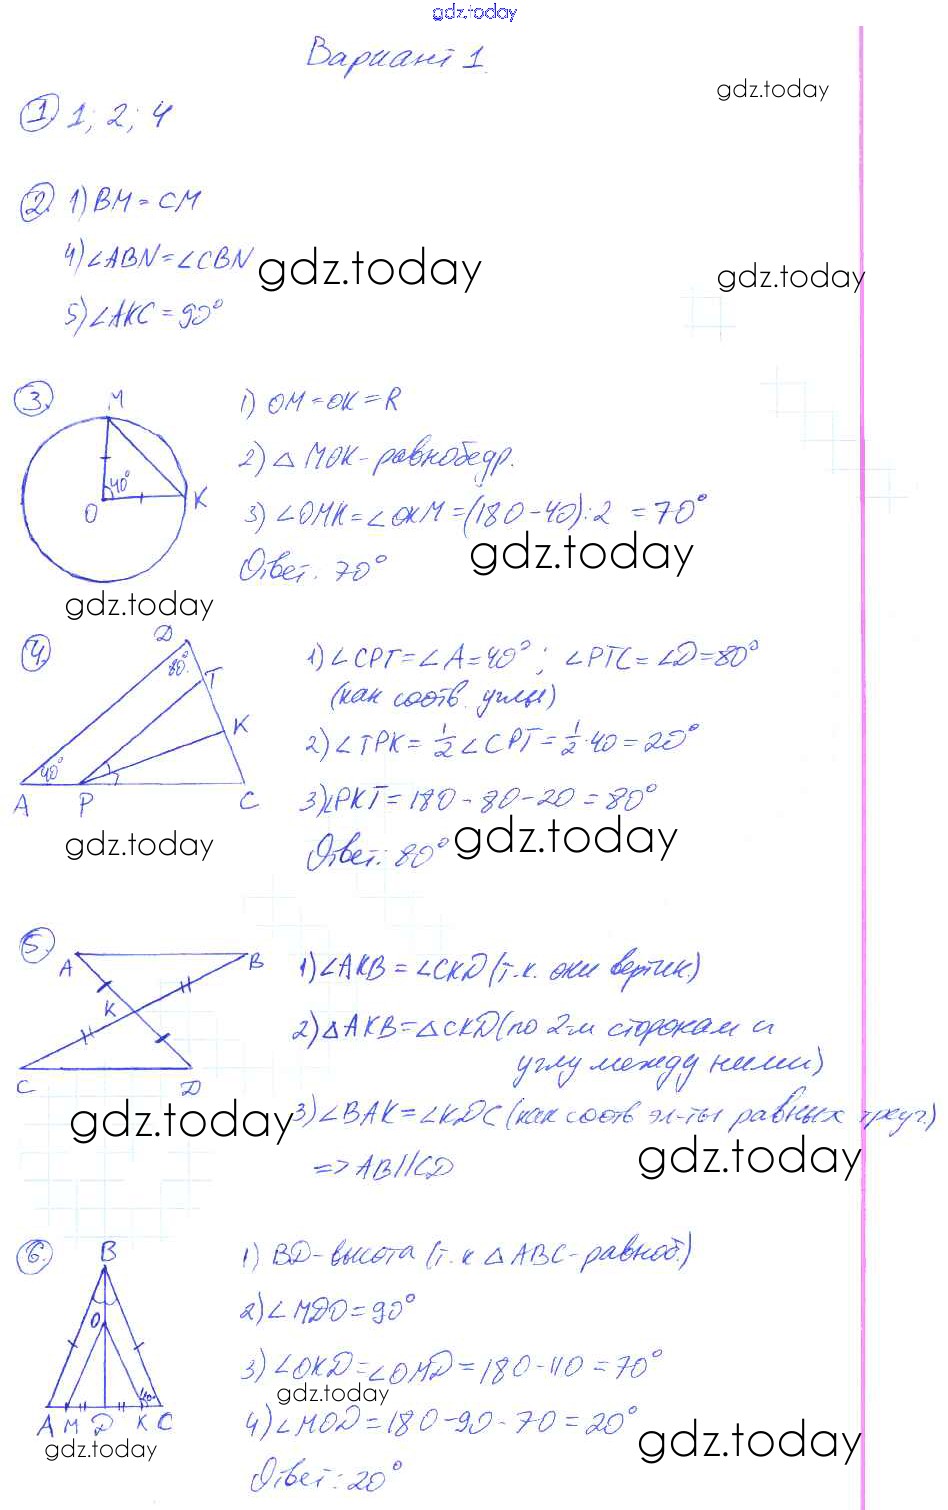 gdz.today
Вариант 1.
gdz.today
① 1; 2; 4
②. 1) BM = CM
4) ∠ABN = ∠CBN
gdz.today
gdz.today
5) ∠AKC = 90°
③.
M
40°
O
K
1) OM = OK = R
2) △ MOK - равнобедр.
3) ∠OMK = ∠OKM = (180 - 40) : 2 = 70°
gdz.today
Ответ: 70°
gdz.today
④.
D
80°
T
K
40°
A P C
1) ∠CPT = ∠A = 40° ; ∠PTC = ∠D = 80°
(как соотв. углы)
2) ∠TPK = 1/2 ∠CPT = 1/2 · 40 = 20°
3) ∠PKT = 180 - 80 - 20 = 80°
gdz.today
gdz.today
Ответ: 80°
⑤.
A B
K
C D
1) ∠AKB = ∠CKD (т.к. они вертик.)
2) △AKB = △CKD (по 2-м сторонам и
углу между ними)
gdz.today
3) ∠BAK = ∠KDC (как соотв эл-ты равных треуг.)
gdz.today
=> AB || CD
⑥.
B
O
110°
A M D K C
1) BD - высота (т.к △ ABC - равноб.)
2) ∠MDO = 90°
3) ∠OKD = ∠OMD = 180 - 110 = 70°
gdz.today
4) ∠MOD = 180 - 90 - 70 = 20°
gdz.today
gdz.today
Ответ: 20°